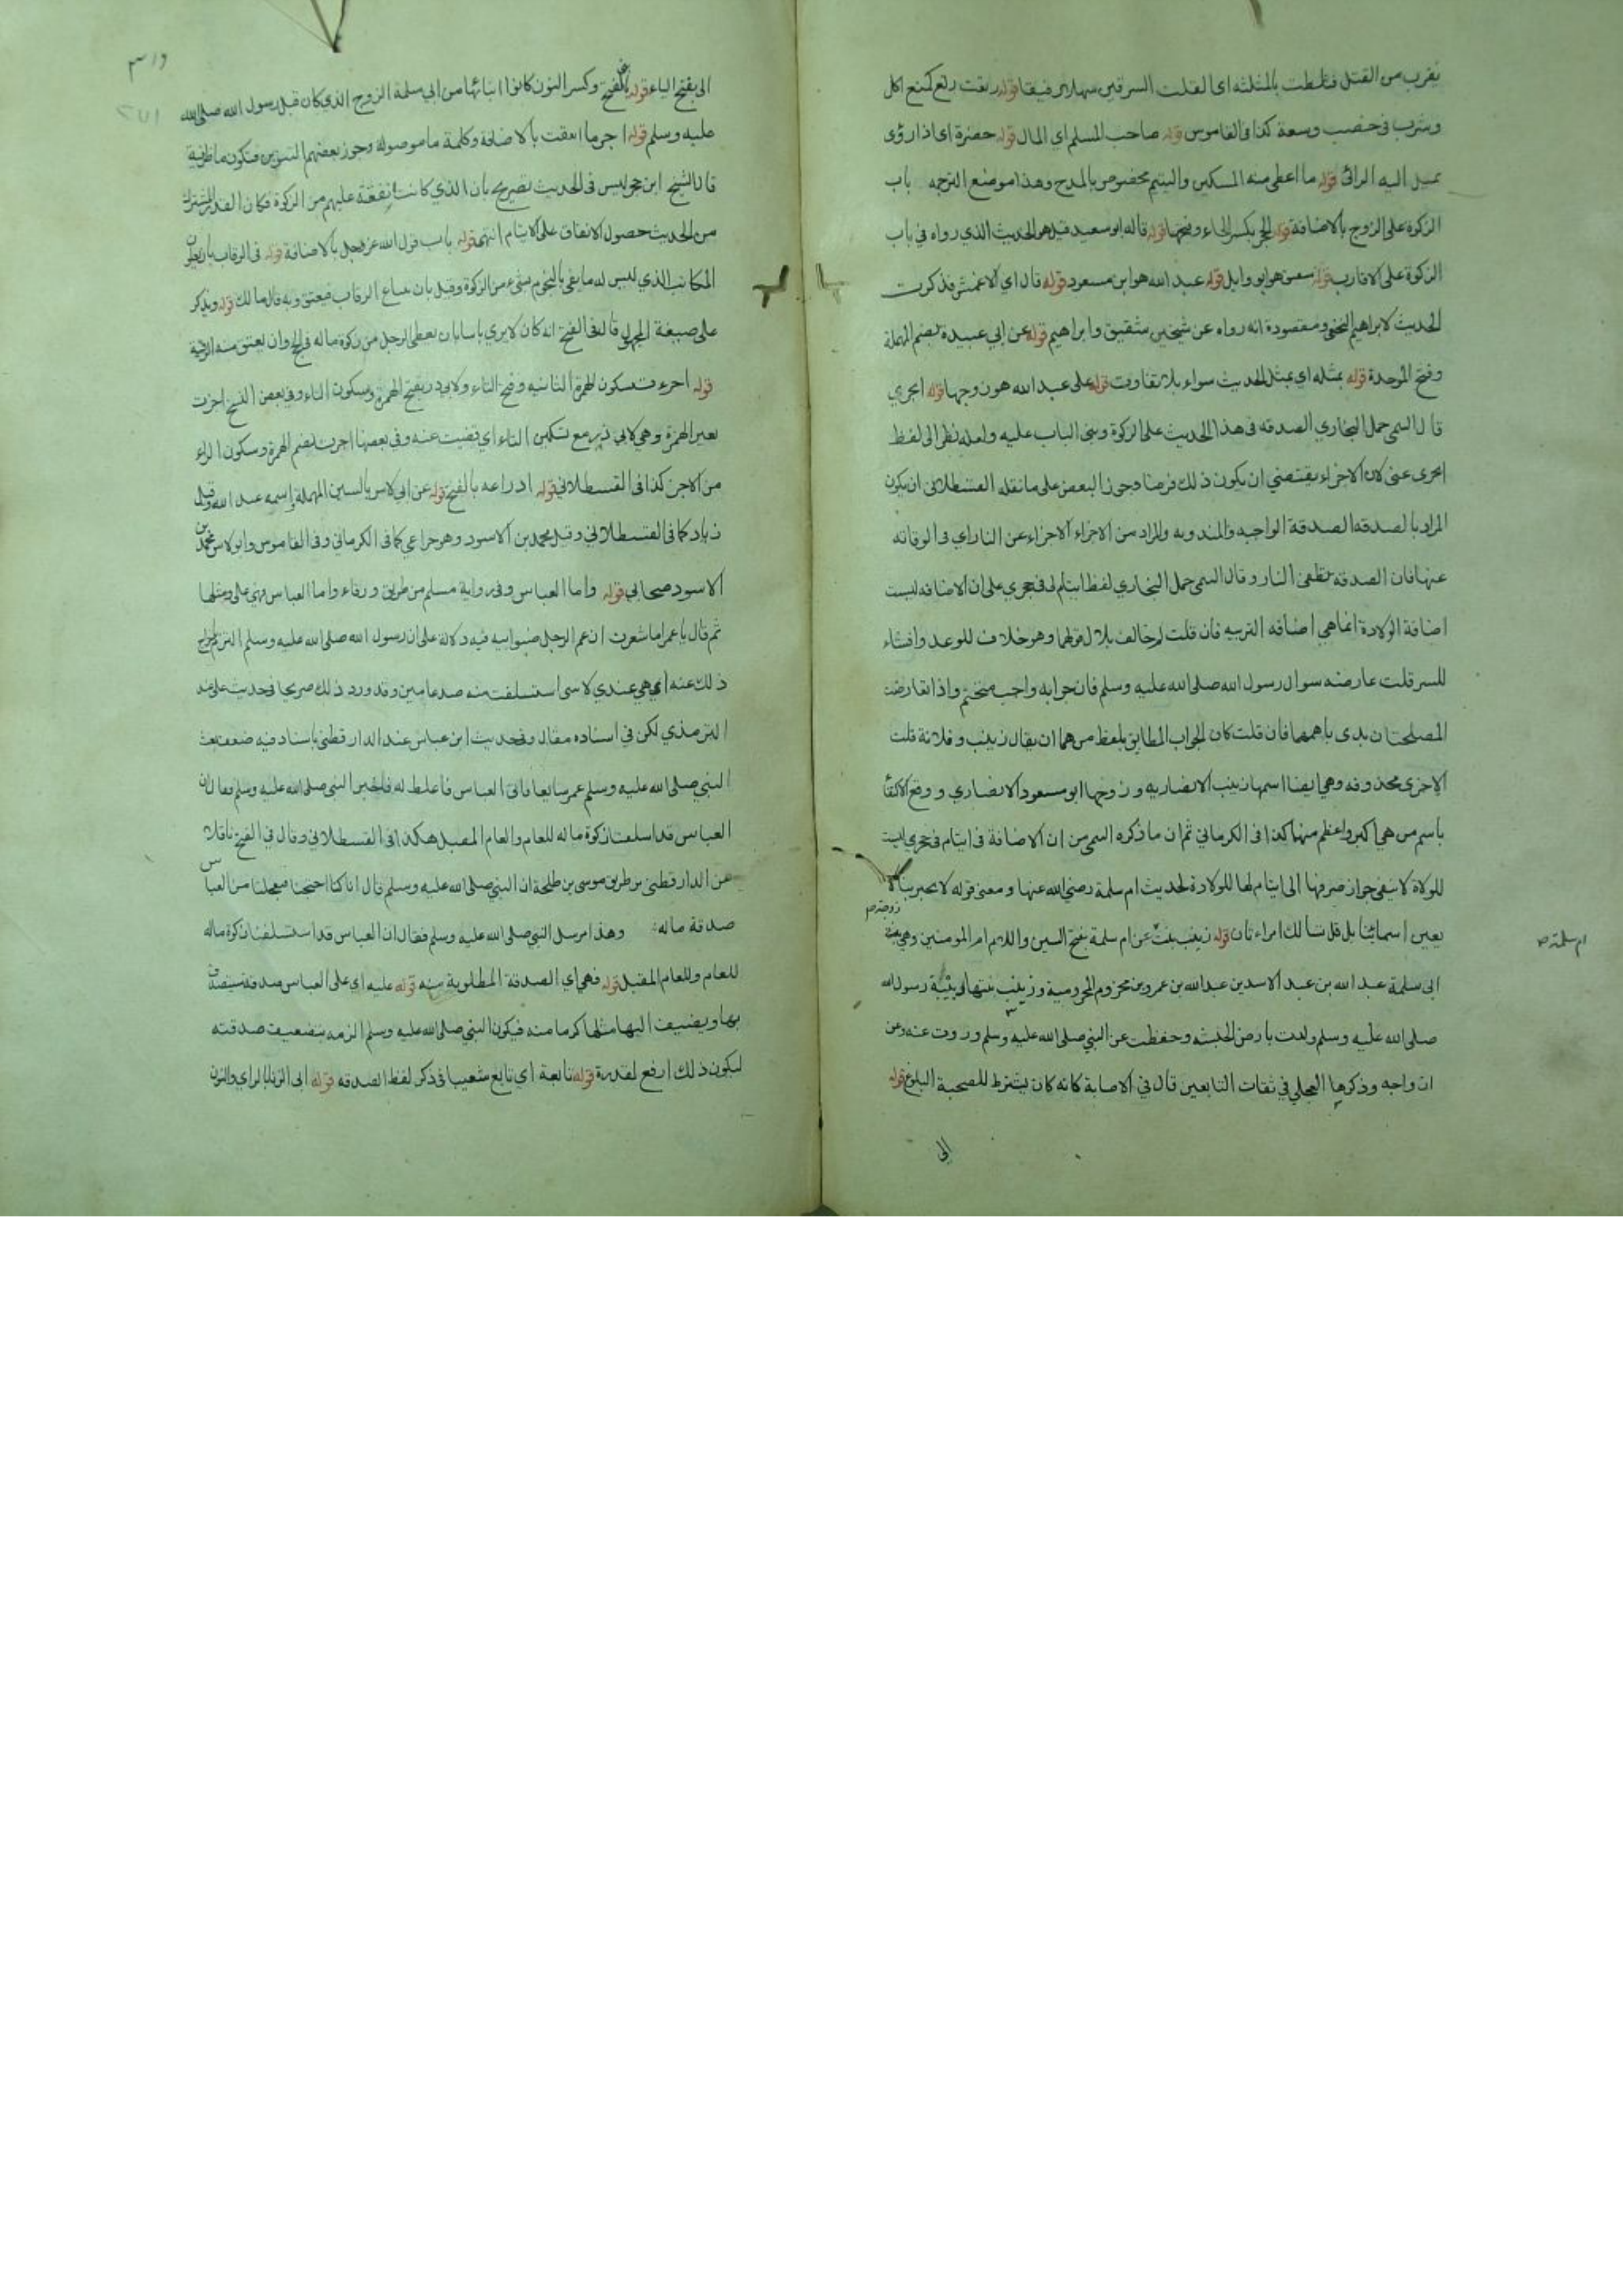 يقرب من القتل فثلطت بالمثلثه اى القلت السرقين سهلا رقيقا قوله رتعت رتع كمنع اكل
وشرب فى خصب وسعة كذا فى القاموس قوله صاحب المسلم اي المال قوله خضرة اى اذا رؤى
يميل اليه الرائى قوله ما اعطى منه المسكين واليتيم مخصوص بالمدح وهذا موضع الترجمه باب
الزكوة على الزوج بالاضافة قوله الحجر بكسر الحاء وفتحها قوله قاله ابو سعيد قيل هو الحديث الذي رواه في باب
الزكوة على الاقارب قوله شقيق هو ابو وايل قوله عبد الله هو ابن مسعود قوله قال اي الاعمش فذكرت
الحديث لابراهيم النخعى ومقصوده انه رواه عن شيخين شقيق وابراهيم قوله عن ابي عبيدة بضم المهملة
وفتح الموحدة قوله بمثله اي بمثل الحديث سواء بلا تفاوت قوله على عبد الله هو زوجها قوله ايجزي
قال التيمى حمل البخاري الصدقه فى هذا الحديث على الزكوة وبنى الباب عليه ولعله نظر الى لفظ
ايجزى عنى لان الاجزاء يقتضي ان يكون ذلك فرضا وجوز البعض على ما نقله القسطلانى ان يكون
المراد بالصدقه الصدقة الواجبه والمندوبه والمراد من الاجزاء الاجزاء عن النار اي فى الوقاته
عنها فان الصدقه تطفى النار وقال التيمى حمل البخاري لفظ ايتام لى فى حجري على ان الاضافه ليست
اضافة الولادة انما هي اضافه التربيه فان قلت لم خالف بلال قولها وهو خلاف للوعد وافشاء
للسر قلت عارضه سوال رسول الله صلى الله عليه وسلم فان جوابه واجب متحتم واذا تعارضت
المصلحتان بدى باهمهما فان قلت كان الجواب المطابق بلفظ من هما ان يقال زينب وفلانة قلت
الاخرى محذوفه وهي ايضا اسمها زينب الانصاريه وزوجها ابو مسعود الانصاري ووقع الاكتفا
باسم من هي اكبر واعظم منها كذا فى الكرماني ثم ان ما ذكره التيمى من ان الاضافة فى ايتام فى حجري ليست
للولادة لا ينفى جواز صرفها الى ايتام لها للولادة لحديث ام سلمة رضي الله عنها ومعنى قوله لا تخبر بنا لا
زوجة
يعين اسمائنا بل قل تسألك امراءتان قوله زينب بنت عن ام سلمة بفتح السين واللام ام المومنين وهي بنت
ام سلمة صح
ابى سلمة عبد الله بن عبد الاسد بن عبد الله بن عمرو بن مخزوم المخزومية وزينب بنتها ربيبة رسول الله
صلى الله عليه وسلم ولدت بارض الحبشه وحفظت عن النبي صلى الله عليه وسلم وروت عنه وعن
ازواجه وذكرها العجلي في ثقات التابعين قال في الاصابة كانه كان يشترط للصحبة البلوغ قوله
الى
٣١٩
الى بفتح الياء قوله بالفتح وكسر النون كانوا ابنائها من ابي سلمة الزوج الذي كان قبل رسول الله صلى الله
عليه وسلم قوله اجر ما انفقت بالاضافة وكلمة ما موصولة وجوز بعضهم التنوين فتكون ما ظرفية
قال الشيخ ابن حجر ليس فى الحديث تصريح بان الذي كانت تنفقه عليهم من الزكوة فكان القدر المشترك
من الحديث حصول الانفاق على الايتام انتهى قوله باب قول الله عز وجل بالاضافة قوله فى الرقاب بان يعطى
المكاتب الذي ليس له ما يفى بالنجوم شئ من الزكوة وقيل بان يبتاع الرقاب فيعتق وبه قال مالك قوله ويذكر
على صيغة المجهول قال فى الفتح انه كان لا يرى باسا بان يعطى الرجل من زكوة ماله فى الحج وان يعتق منه الرقبة
قوله اجزءت بسكون الهمزة الثانيه وفتح التاء ولابي ذر بفتح الهمزة وسكون التاء وفي بعض النسخ اجزت
بغير الهمزة وهي لابي ذر مع تسكين التاء اي قضيت عنه وفي بعضها اجرت بضم الهمزة وسكون الراء
من الاجر كذا فى القسطلاني قوله ادراعه بالفتح قوله عن ابي لاس بالسين المهملة واسمه عبد الله وقيل
زياد كما فى القسطلاني وقيل محمد بن الاسود وهو خزاعي كما فى الكرماني وفى القاموس وابو لاس محمد بن
الاسود صحابي قوله واما العباس وفى رواية مسلم من طريق ورقاء واما العباس فهى على ومثلها
ثم قال يا عمر اما شعرت ان عم الرجل صنو ابيه فيه دلالة على ان رسول الله صلى الله عليه وسلم التزم اخراج
ذلك عنه اي هي عندي لاني استسلفت منه صدقة عامين وقد ورد ذلك صريحا فى حديث على عند
الترمذي لكن في اسناده مقال وفى حديث ابن عباس عند الدارقطنى باسناد فيه ضعف بعث
النبي صلى الله عليه وسلم عمر ساعيا فاتى العباس فاغلظ له فاخبر النبى صلى الله عليه وسلم فقال ان
العباس قد اسلفنا زكوة ماله للعام والعام المقبل هكذا فى القسطلاني وقال في الفتح ناقلا
عن الدارقطنى من طريق موسى بن طلحة ان النبي صلى الله عليه وسلم قال انا كنا احتجنا فتعجلنا من العباس
صدقة ماله وهذا مرسل النبي صلى الله عليه وسلم فقال ان العباس قد استسلفنا زكوة ماله
للعام وللعام المقبل قوله فهي اي الصدقة المطلوبة منه قوله عليه اي على العباس صدقة سيتصدق
بها ويضيف اليها مثلها كرما منه فيكون النبي صلى الله عليه وسلم الزمه بتضعيف صدقته
ليكون ذلك ارفع لقدره قوله تابعة اي تابع شعيبا فى ذكر لفظ الصدقه قوله ابى الزناد بالزاي والنون